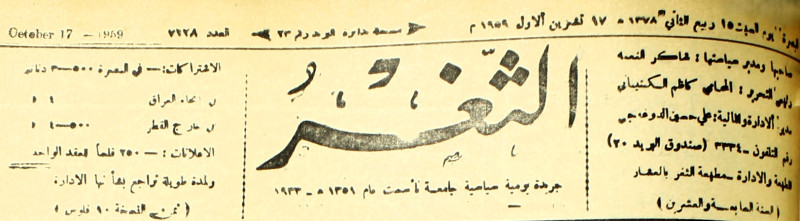 البصرة يوم السبت ١٥ ربيع الثاني ١٣٧٨ هـ ١٧ تشرين الاول ١٩٥٩ م
تلفون دائرة البريد رقم ٢٣
العدد ٧١٢٨
October 17 - 1959
صاحبها ومدير سياستها : شاكر النعمة
رئيس التحرير : المحامي كاظم
مدير الادارة والمالية : علي حسين
رقم التلفون - ٣٣٣٤ (صندوق البريد ٢٠)
الطبعة والادارة - مطبعة الثغر بالعشار
( السنة السابعة والعشرين )
الثغر
جريدة يومية سياسية جامعة تأسست عام ١٣٥١ هـ - ١٩٣٣
الاشتراكات : - في البصرة ٥٠٠-٣ دنانير
في انحاء العراق ٤ د
في خارج القطر ٥٠٠-٤ د
الاعلانات : - ٢٥٠ فلساً للعقد الواحد
ولمدة طويلة تراجع بشأنها الادارة
( ثمن النسخة ١٠ فلوس )